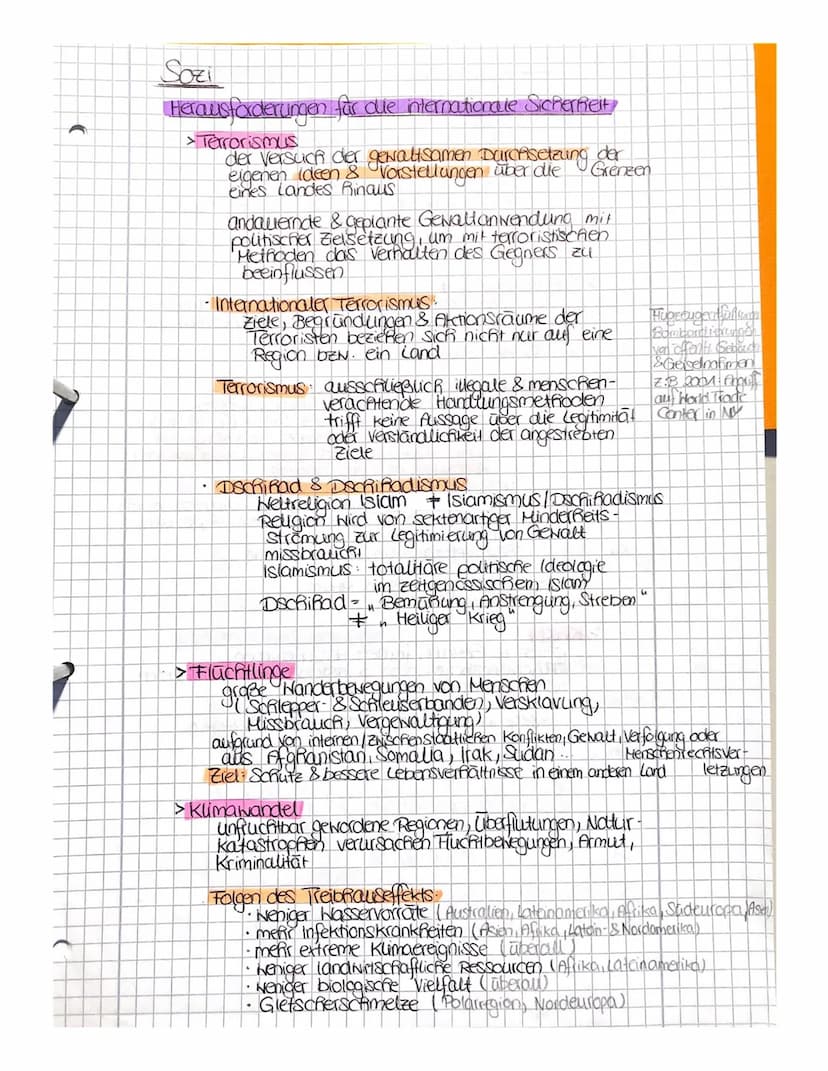 Sozi
Herausforderungen für die internationale Sicherheit
> Terrorismus
der Versuch der gewaltsamen Durchsetzung der
eigenen Ideen & Vorstellungen über die Grenzen
eines Landes hinaus
andauernde & geplante Gewaltanwendung mit
politischer Zielsetzung, um mit terroristischen
Methoden das Verhalten des Gegners zu
beeinflussen
· Internationaler Terrorismus:
Ziele, Begründungen & Aktionsräume der
Terroristen beziehen sich nicht nur auf eine
Region bzw. ein Land
Flugzeugentführung
Bombardierungen
von öffentl. Gebäud.
& Geiselnahmen
z.B. 2001: Angriff
auf World Trade
Center in NY
Terrorismus: ausschließlich illegale & menschen-
verachtende Handlungsmethoden
trifft keine Aussage über die Legitimität
oder Verständlichkeit der angestrebten
Ziele
· Dschihad & Dschihadismus
Weltreligion Islam ≠ Islamismus/Dschihadismus
Religion wird von sektenartiger Minderheits-
strömung zur Legitimierung von Gewalt
missbraucht
Islamismus: totalitäre politische Ideologie
im zeitgenössischem Islam
Dschihad = „Bemühung, Anstrengung, Streben"
≠ „Heiliger Krieg"
> Flüchtlinge
große Wanderbewegungen von Menschen
(Schlepper- & Schleuserbanden, Versklavung,
Missbrauch, Vergewaltigung)
aufgrund von internen/zwischenstaatlichen Konflikten, Gewalt, Verfolgung oder
aus Afghanistan, Somalia, Irak, Sudan... Menschenrechtsver-
Ziel: Schutz & bessere Lebensverhältnisse in einem anderen Land letzungen
> Klimawandel
unfruchtbar gewordene Regionen, Überflutungen, Natur-
katastrophen verursachen Fluchtbewegungen, Armut,
Kriminalität
Folgen des Treibhauseffekts:
· weniger Wasservorräte (Australien, Lateinamerika, Afrika, Südeuropa, Asien)
· mehr Infektionskrankheiten (Asien, Afrika, Latein- & Nordamerika)
· mehr extreme Klimaereignisse (überall)
· weniger landwirtschaftliche Ressourcen (Afrika, Lateinamerika)
· weniger biologische Vielfalt (überall)
· Gletscherschmelze (Polarregion, Nordeuropa)